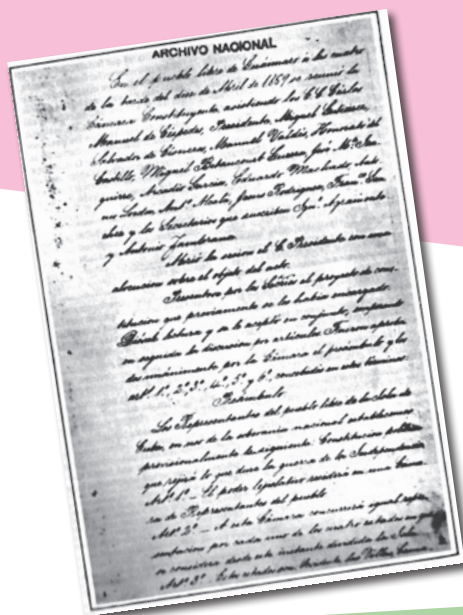 ARCHIVO NACIONAL
En el pueblo libre de Guáimaro á las cuatro
de la tarde del diez de Abril de 1869 se reunió la
Cámara Constituyente asistiendo los C.C. Carlos
Manuel de Céspedes, Presidente, Miguel Gutierrez,
Salvador de Cisneros, Manuel Valdés, Honorato del
Castillo, Miguel Betancourt Guerra, José Mª
Arcadio Garcia, Eduardo Machado, Anto
nio Lorda, Antº Alcalá, Jesus Rodriguez, Franco
y los Secretarios que suscriben Ignº Agramonte
y Antonio Zambrana.
Abrió la sesion el C. Presidente con una
alocucion sobre el objeto del acto.
Presentóse por la Secria el proyecto de cons
titucion que previamente se les habia encargado.
Dióse lectura y se le aceptó en conjunto, empezando
en seguida la discusion por artículos. Fueron aproba
dos unánimemente por la Cámara el preámbulo y los
artº 1º, 2º, 3º, 4º, 5º y 6º, concebidos en estos términos:
Preámbulo
Los Representantes del pueblo libre de la Isla de
Cuba, en uso de la soberanía nacional establecemos
provisionalmente la siguiente Constitucion política
que regirá lo que dure la guerra de la Independencia
Artº 1º — El poder legislativo residirá en una Cáma
ra de Representantes del pueblo
Artº 2º — A esta Cámara concurrirá igual repre
sentacion por cada uno de los cuatro estados en que
se considera desde este instante dividida la Isla.
Artº 3º Estos estados son Occidente, Las Villas, Cama